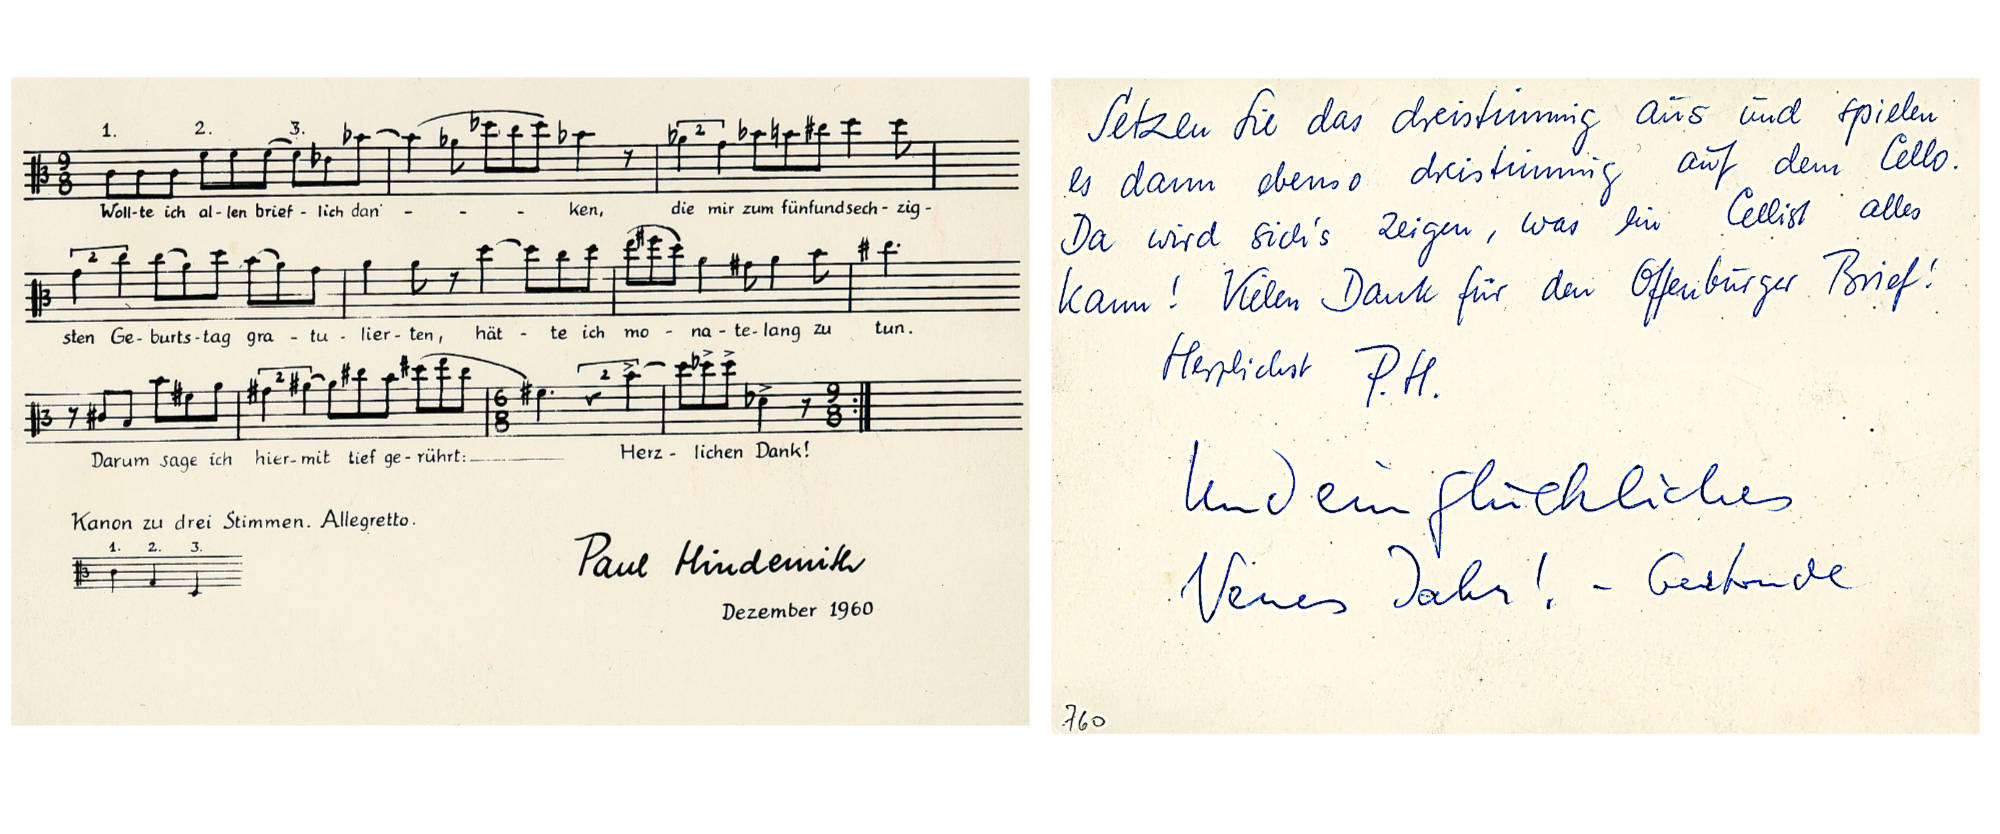 1. 2. 3.
9 8 2
Woll-te ich al-len brief-lich dan - - - ken, die mir zum fünfundsech-zig-
2
sten Ge-burts-tag gra-tu-lier-ten, hät-te ich mo-na-te-lang zu tun.
2 6 8 2 9 8
Darum sage ich hier-mit tief ge-rührt: Herz-lichen Dank!
Kanon zu drei Stimmen. Allegretto.
1. 2. 3.
Paul Hindemith
Dezember 1960
Setzen Sie das dreistimmig aus und spielen
es dann ebenso dreistimmig auf dem Cello.
Da wird sich's zeigen, was ein Cellist alles
kann! Vielen Dank für den Offenburger Brief!
Herzlichst P.H.
Und ein glückliches
Neues Jahr! - Gertrude
760